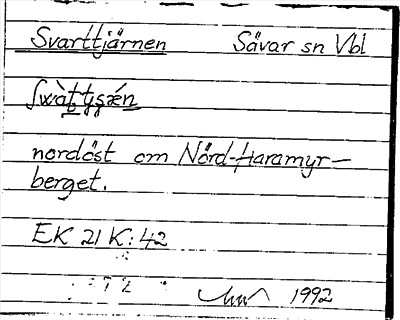 Svarttjärnen Sävar sn Vbl
nordöst om Nörd-Haramyr-
berget.
EK 21 K:42
1992